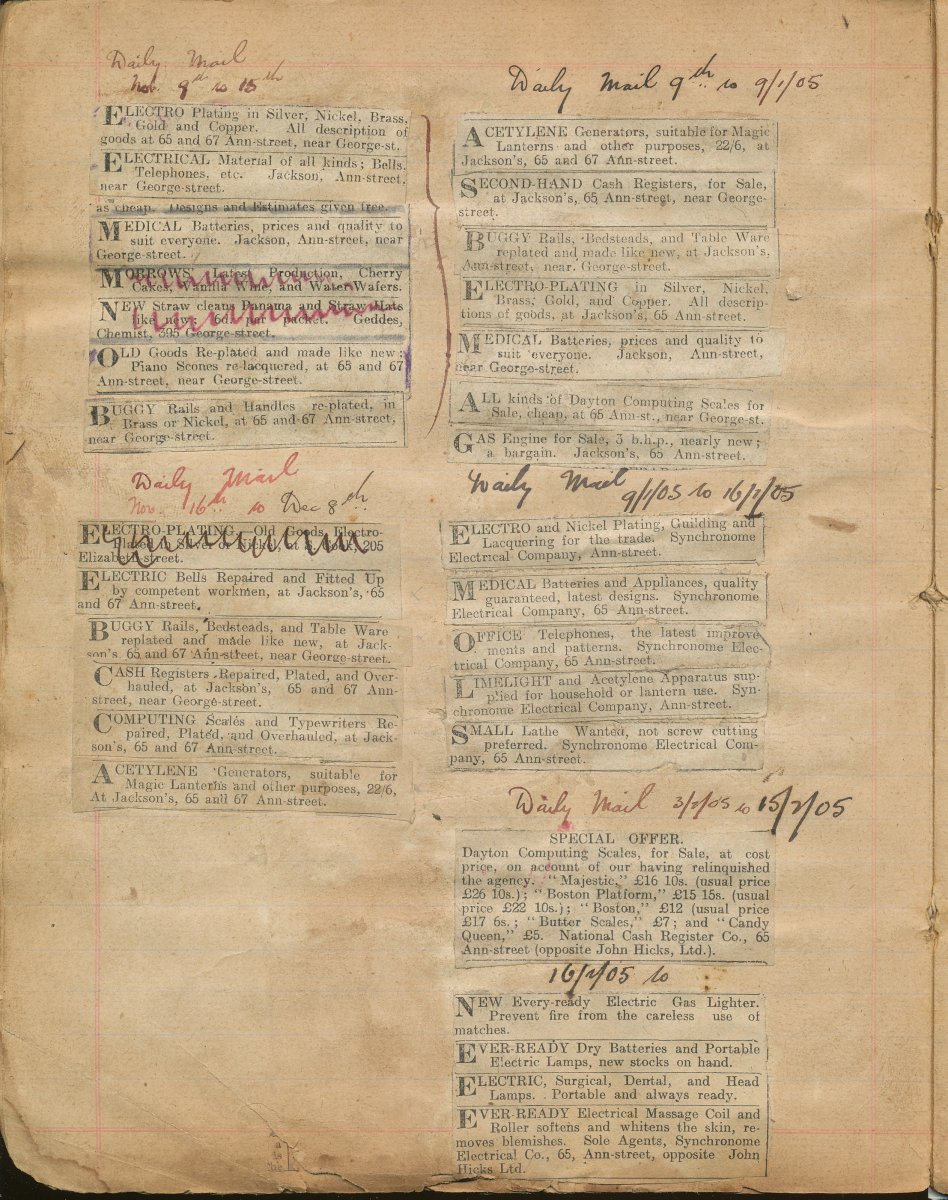 Daily Mail
Nov. 9th to 15th
ELECTRO Plating in Silver, Nickel, Brass,
Gold and Copper. All description of
goods at 65 and 67 Ann-street, near George-st.
ELECTRICAL Material of all kinds; Bells,
Telephones, etc. Jackson, Ann-street,
near George-street.
as cheap. Designs and Estimates given free.
MEDICAL Batteries, prices and quality to
suit everyone. Jackson, Ann-street, near
George-street.
MORROWS' Latest Production, Cherry
Cakes, Vanilla Wine, and Water Wafers.
NEW Straw cleans Panama and Straw Hats
like new; 6d. per packet. Geddes,
Chemist, 395 George-street.
OLD Goods Re-plated and made like new;
Piano Scones re-lacquered, at 65 and 67
Ann-street, near George-street.
BUGGY Rails and Handles re-plated, in
Brass or Nickel, at 65 and 67 Ann-street,
near George-street.
Daily Mail
Nov. 16th to Dec 8th
ELECTRO-PLATING.—Old Goods Electro-
Plated in Silver or Nickel, at 205
Elizabeth-street.
ELECTRIC Bells Repaired and Fitted Up
by competent workmen, at Jackson's, 65
and 67 Ann-street.
BUGGY Rails, Bedsteads, and Table Ware
replated and made like new, at Jack-
son's 65 and 67 Ann-street, near George-street.
CASH Registers Repaired, Plated, and Over-
hauled, at Jackson's, 65 and 67 Ann-
street, near George-street.
COMPUTING Scales and Typewriters Re-
paired, Plated, and Overhauled, at Jack-
son's, 65 and 67 Ann-street.
ACETYLENE Generators, suitable for
Magic Lanterns and other purposes, 22/6,
At Jackson's, 65 and 67 Ann-street.
Daily Mail 9th to 9/1/05
ACETYLENE Generators, suitable for Magic
Lanterns and other purposes, 22/6, at
Jackson's, 65 and 67 Ann-street.
SECOND-HAND Cash Registers, for Sale,
at Jackson's, 65 Ann-street, near George-
street.
BUGGY Rails, Bedsteads, and Table Ware
replated and made like new, at Jackson's,
Ann-street, near. George-street.
ELECTRO-PLATING in Silver, Nickel,
Brass, Gold, and Copper. All descrip-
tions of goods, at Jackson's, 65 Ann-street.
MEDICAL Batteries, prices and quality to
suit everyone. Jackson, Ann-street,
near George-street.
ALL kinds of Dayton Computing Scales for
Sale, cheap, at 65 Ann-st., near George-st.
GAS Engine for Sale, 3 b.h.p., nearly new;
a bargain. Jackson's, 65 Ann-street.
Daily Mail 9/1/05 to 16/1/05
ELECTRO and Nickel Plating, Guilding and
Lacquering for the trade. Synchronome
Electrical Company, Ann-street.
MEDICAL Batteries and Appliances, quality
guaranteed, latest designs. Synchronome
Electrical Company, 65 Ann-street.
OFFICE Telephones, the latest improve
ments and patterns. Synchronome Elec-
trical Company, 65 Ann-street.
LIMELIGHT and Acetylene Apparatus sup-
plied for household or lantern use. Syn-
chronome Electrical Company, Ann-street.
SMALL Lathe Wanted, not screw cutting
preferred. Synchronome Electrical Com-
pany, 65 Ann-street.
Daily Mail 3/2/05 to 15/2/05
SPECIAL OFFER.
Dayton Computing Scales, for Sale, at cost
price, on account of our having relinquished
the agency. "Majestic," £16 10s. (usual price
£26 10s.); "Boston Platform," £15 15s. (usual
price £22 10s.); "Boston," £12 (usual price
£17 6s.; "Butter Scales," £7; and "Candy
Queen," £5. National Cash Register Co., 65
Ann-street (opposite John Hicks, Ltd.).
16/2/05 to
NEW Every-ready Electric Gas Lighter.
Prevent fire from the careless use of
matches.
EVER-READY Dry Batteries and Portable
Electric Lamps, new stocks on hand.
ELECTRIC, Surgical, Dental, and Head
Lamps. Portable and always ready.
EVER-READY Electrical Massage Coil and
Roller softens and whitens the skin, re-
moves blemishes. Sole Agents, Synchronome
Electrical Co., 65, Ann-street, opposite John
Hicks Ltd.